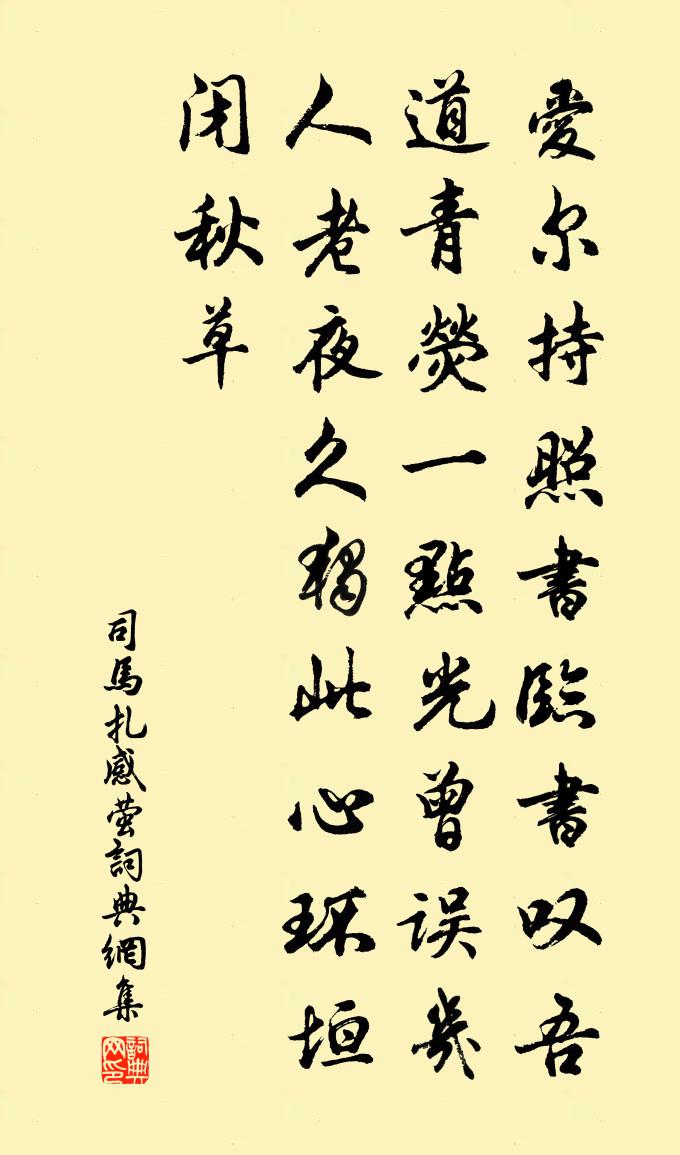 愛尔持照書臨書叹吾
道青熒一點光曾误幾
人老夜久獨此心环垣
闭秋草
司馬扎感萤詞典網集
詞典
网印